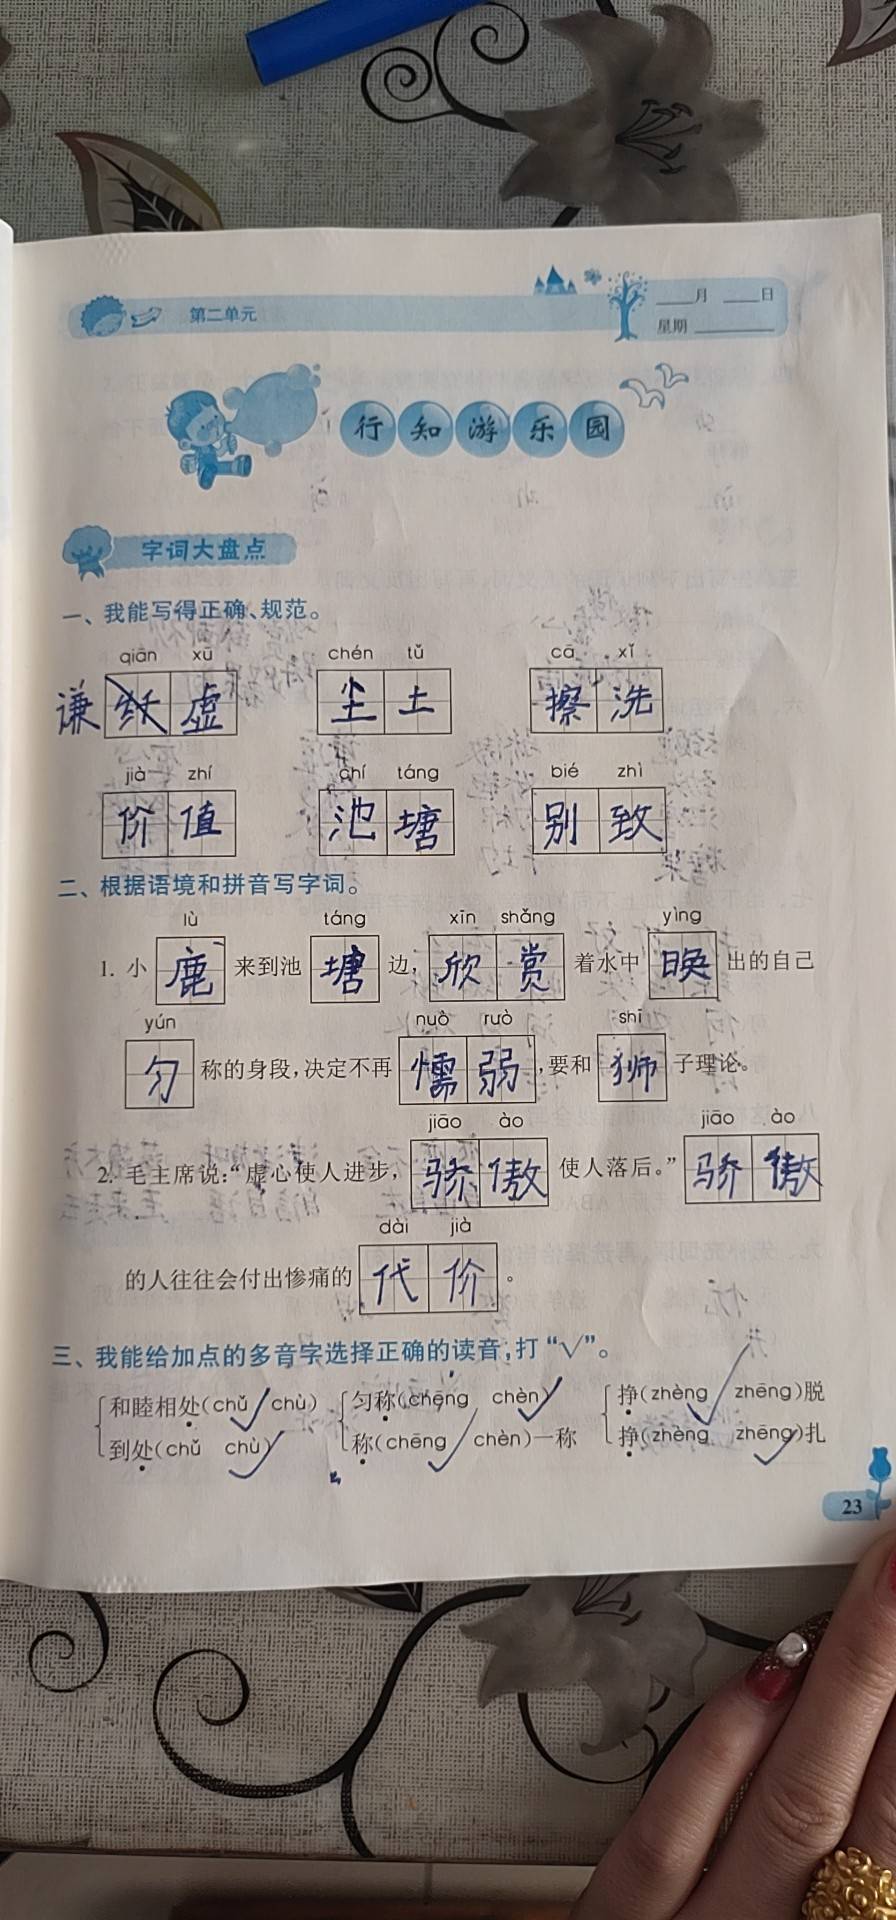 第二单元
____月 ____日
星期 ________
行知游乐园
字词大盘点
一、我能写得正确、规范。
qiān xū chén tǔ cā xǐ
谦 虚 尘 土 擦 洗
jià zhí chí táng bié zhì
价 值 池 塘 别 致
二、根据语境和拼音写字词。
lù táng xīn shǎng yìng
1. 小 鹿 来到池 塘 边, 欣 赏 着水中 映 出的自己
yún nuò ruò shī
匀 称的身段,决定不再 懦 弱 ,要和 狮 子理论。
jiāo ào jiāo ào
2. 毛主席说:“虚心使人进步, 骄 傲 使人落后。” 骄 傲
dài jià
的人往往会付出惨痛的 代 价 。
三、我能给加点的多音字选择正确的读音,打“√”。
和睦相处(chǔ ✓ chù) 匀称(chēng chèn)✓ 挣(zhèng ✓ zhēng)脱
到处(chǔ chù)✓ 称(chēng ✓ chèn)一称 挣(zhèng zhēng✓)扎
23